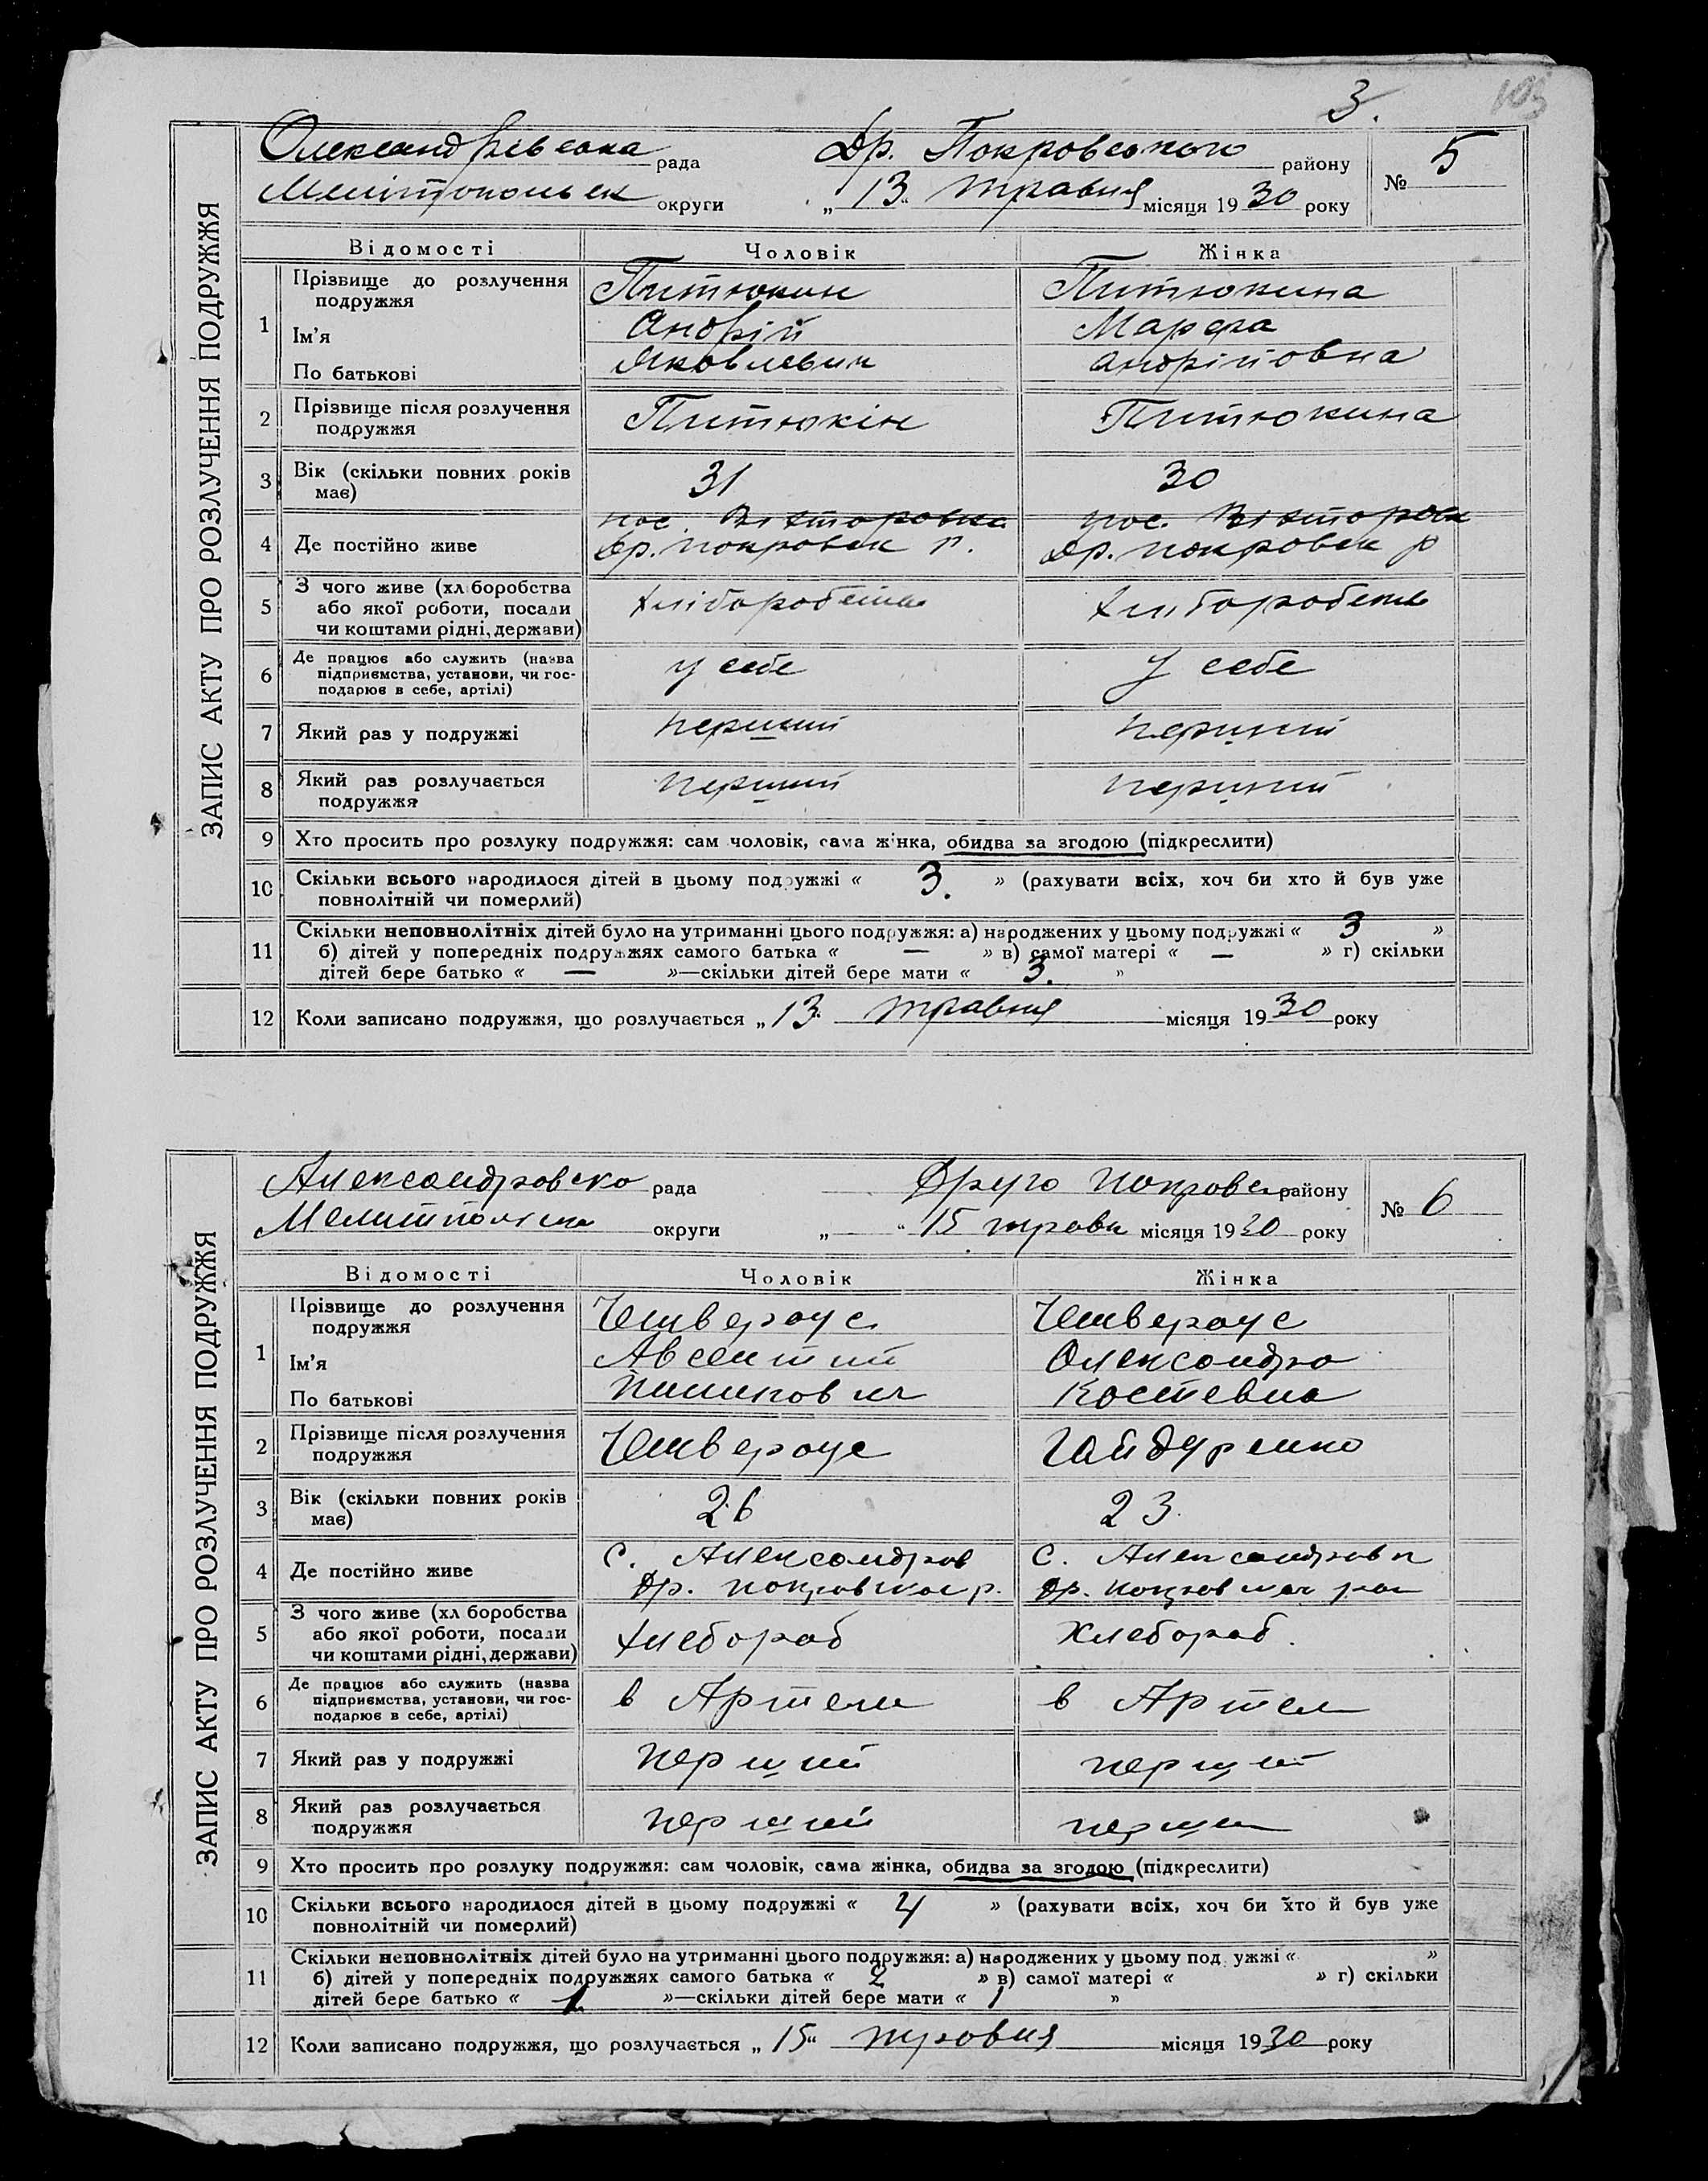 3.
103
ЗАПИС АКТУ ПРО РОЗЛУЧЕННЯ ПОДРУЖЖЯ
Олександрівська рада Др. Покровського району № 5
Мелітопольск округи „ 13 “ травня місяця 1930 року
Відомості Чоловік Жінка
1 Прізвище до розлучення подружжя Питюкин Питюкина
Ім’я Андрій Марфа
По батькові Яковлевич Андрійовна
2 Прізвище після розлучення подружжя Питюкін Питюкина
3 Вік (скільки повних років має) 31 30
4 Де постійно живе пос. Вікторовка пос. Вікторовк
Др. Покровск р. Др. Покровск р
5 З чого живе (хл боробства або якої роботи, посади чи коштами рідні, держави) хліборобство хліборобство
6 Де працює або служить (назва підприємства, установи, чи господарює в себе, артілі) у себе у себе
7 Який раз у подружжі перший перший
8 Який раз розлучається подружжя перший перший
9 Хто просить про розлуку подружжя: сам чоловік, сама жінка, обидва за згодою (підкреслити)
10 Скільки всього народилося дітей в цьому подружжі « 3. » (рахувати всіх, хоч би хто й був уже
повнолітній чи померлий)
11 Скільки неповнолітніх дітей було на утриманні цього подружжя: а) народжених у цьому подружжі « 3 »
б) дітей у попередніх подружжях самого батька « — » в) самої матері « — » г) скільки
дітей бере батько « — »—скільки дітей бере мати « 3. »
12 Коли записано подружжя, що розлучається „ 13 “ травня місяця 1930 року
ЗАПИС АКТУ ПРО РОЗЛУЧЕННЯ ПОДРУЖЖЯ
Александровско рада Друго Покровск району № 6
округи „ “ 15 травн місяця 1930 року
Відомості Чоловік Жінка
1 Прізвище до розлучення подружжя Чемвероус Чемвероус
Ім’я Авсентий Олександра
По батькові Костевна
2 Прізвище після розлучення подружжя Чемвероус Гайдуренко
3 Вік (скільки повних років має) 26 23
4 Де постійно живе с. Александров с. Александровк
Др. Покровской р. Др. рай
5 З чого живе (хл боробства або якої роботи, посади чи коштами рідні, держави) Хлебороб Хлебороб.
6 Де працює або служить (назва підприємства, установи, чи господарює в себе, артілі) в Артели в Артел
7 Який раз у подружжі перший перший
8 Який раз розлучається подружжя перший перши
9 Хто просить про розлуку подружжя: сам чоловік, сама жінка, обидва за згодою (підкреслити)
10 Скільки всього народилося дітей в цьому подружжі « 4 » (рахувати всіх, хоч би хто й був уже
повнолітній чи померлий)
11 Скільки неповнолітніх дітей було на утриманні цього подружжя: а) народжених у цьому под ужжі « »
б) дітей у попередніх подружжях самого батька « 2 » в) самої матері « » г) скільки
дітей бере батько « 1 »—скільки дітей бере мати « 1 »
12 Коли записано подружжя, що розлучається „ 15 “ травня місяця 1930 року